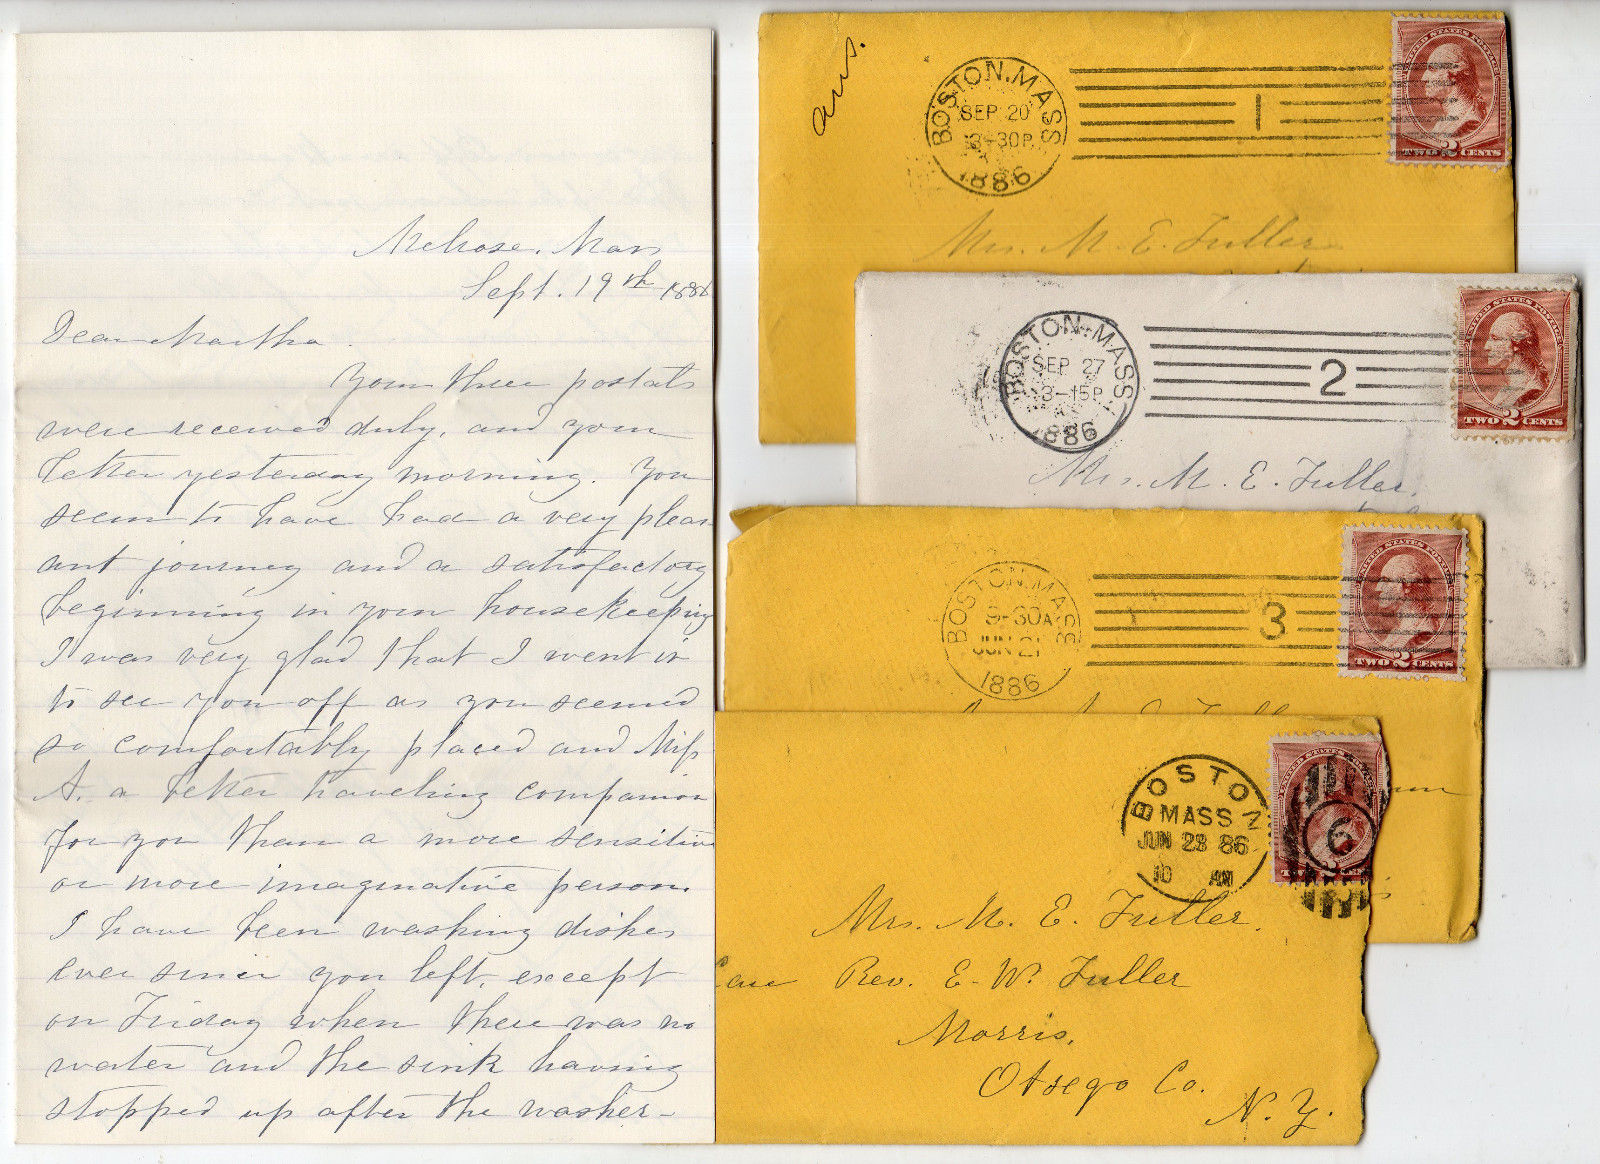 Melrose, Mass
Sept. 19th 1886
Dear Martha.
Your three postals
were received duly, and your
letter yesterday morning. You
seem to have had a very pleas
ant journey and a satisfactory
beginning in your housekeeping
I was very glad that I went in
to see you off as you seemed
so comfortably placed and Miss
A. a better traveling companion
for you than a more sensitive
or more imaginative person.
I have been washing dishes
ever since you left, except
on Friday when there was no
water and the sink having
stopped up after the washer-
ans.
BOSTON. MASS
SEP 20
3-30P
1886
1
UNITED STATES POSTAGE
TWO 2 CENTS
Mrs. M. E. Fuller
BOSTON. MASS
SEP 27
3-15P
1886
2
UNITED STATES POSTAGE
TWO 2 CENTS
Mrs. M. E. Fuller.
BOSTON. MASS
9-30A
JUN 21
1886
3
UNITED STATES POSTAGE
TWO 2 CENTS
BOSTON
MASS
JUN 28 86
10 AM
6
Mrs. M. E. Fuller.
Care Rev. E. W. Fuller
Morris,
Otsego Co.
N. Y.